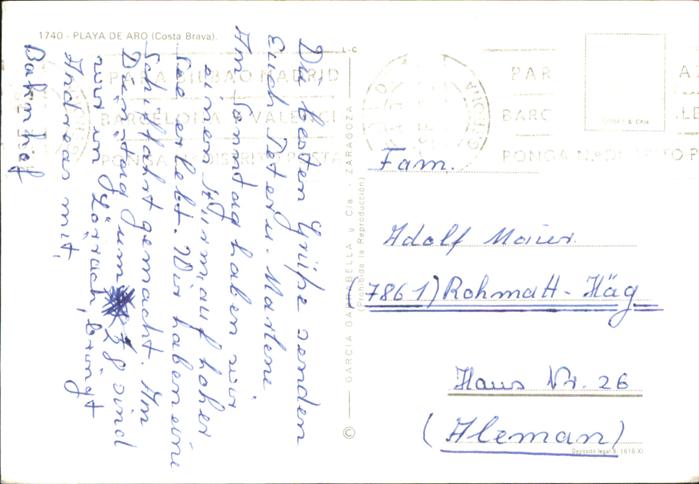 1740 - PLAYA DE ARO (Costa Brava).
Die besten Grüße senden
Euch Peter u. Marlene.
Am Sonntag haben wir
einen Sturm auf hoher
See erlebt. Wir haben eine
Schiffahrt gemacht. Am
Dienstag um 8 sind
wir in Lörrach, bringt
Andreas mit,
Bahnhof
GARCIA GARRABELLA y Cía. - ZARAGOZA
(Prohibida la Reproducción)
©
PARA BILBAO MADRID
BARCELONA VALENCI
PONGA DISTRITO POSTA
PAR
BARC
PONGA
GERONA
Fam.
Adolf Maier
(7861) Rohmatt-Häg
Haus Nr. 26
(Aleman)
Depósito legal B. 1616-XI